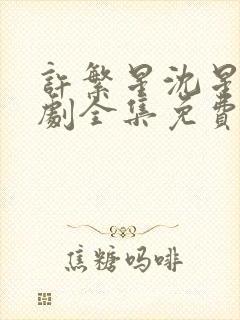 許繁星沈星
劇全集免費
焦糖吗啡